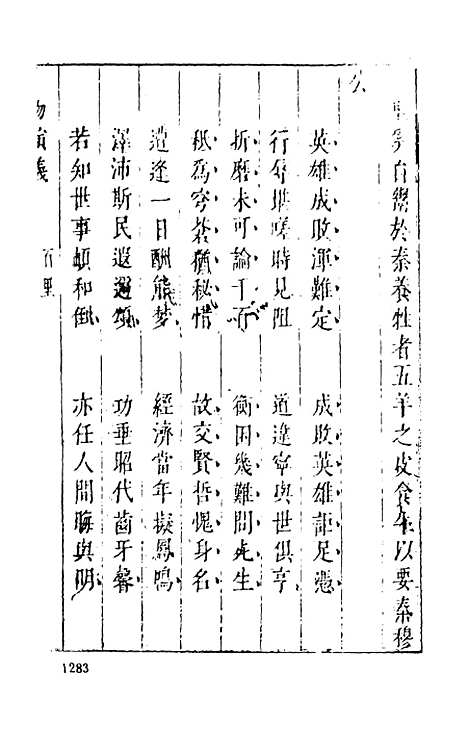 自鬻於秦養牲者五羊之皮食牛以要秦穆
公
英雄成敗渾難定 成敗英雄詎足憑
行 堪嗟時見阻 道違寧與世俱亨
折磨未可論千百 衡困幾難問死生
秪為穹蒼猶秘惜 故交賢哲愧身名
遭逢一日酬熊夢 經濟當年擬鳳鳴
澤沛斯民遐邇頌 功垂昭代齒牙馨
若知世事顛和倒 亦任人間晦與明
演義 百里
1283